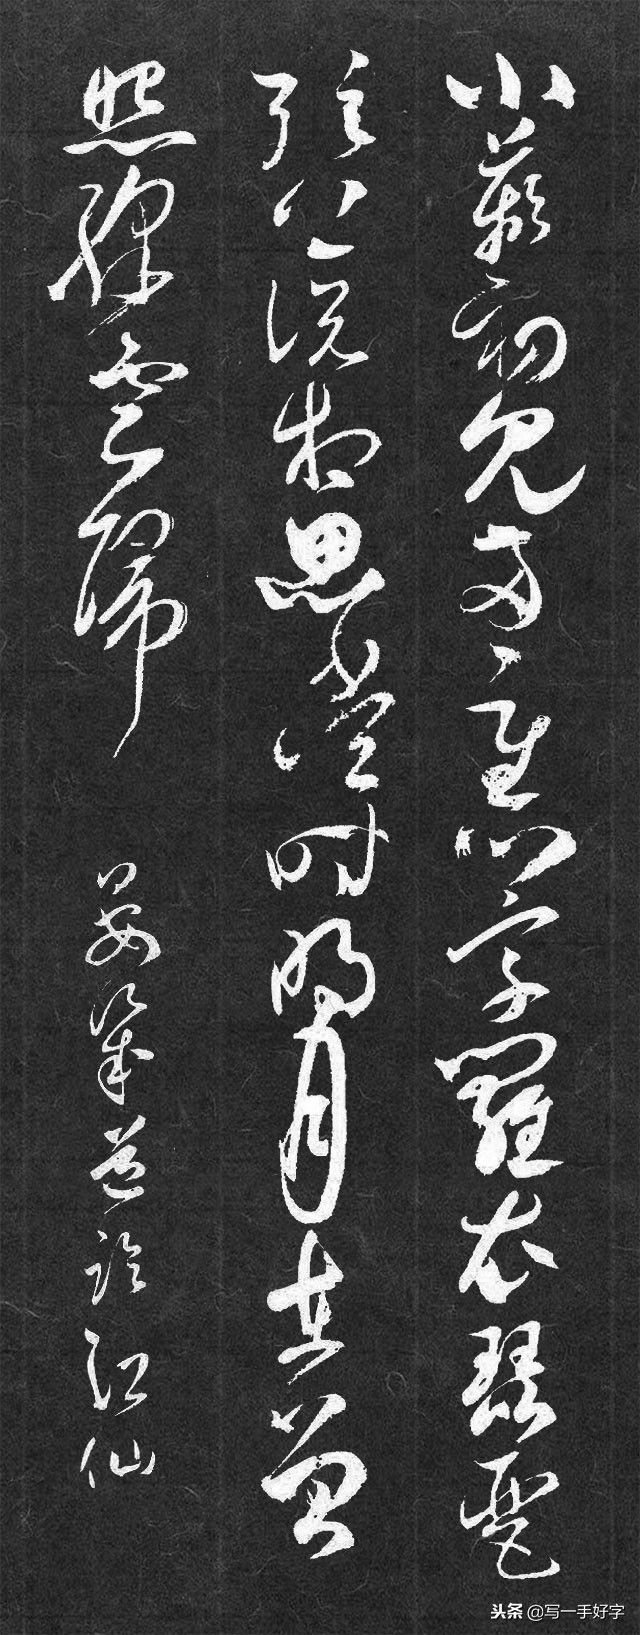 小蘋初見兩重心字羅衣琵琶
弦上説相思當時明月在曾
照綵雲歸
晏幾道臨江仙
头条 @写一手好字